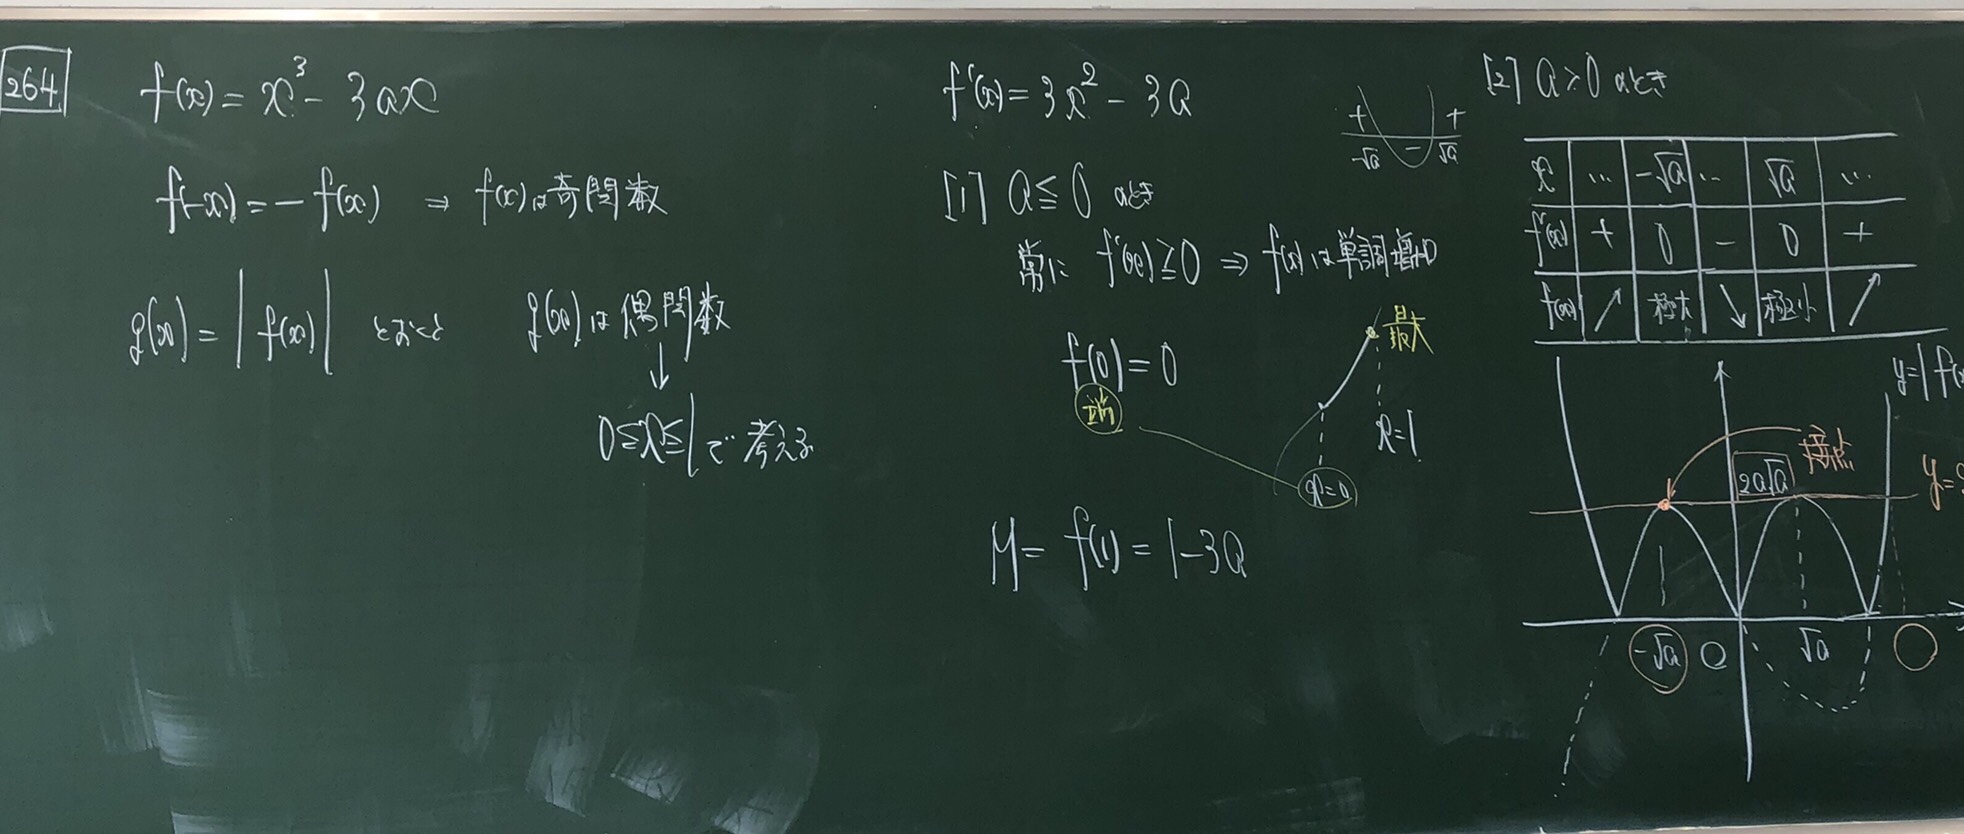 264
f(x) = x³ - 3ax
f(-x) = - f(x) ⇒ f(x)は奇関数
g(x) = | f(x) | とおくと g(x)は偶関数
↓
0≦x≦1で考える
f'(x) = 3x² - 3a
+ - +
-√a √a
[1] a≦0 のとき
常に f'(x)≧0 ⇒ f(x)は単調増加
f(0) = 0
最大
x=1
x=0
M = f(1) = 1-3a
[2] a>0 のとき
x … -√a … √a …
f'(x) + 0 - 0 +
f(x) ↗ 極大 ↘ 極小 ↗
y=|f(x
接点
2a√a
y=
-√a O √a